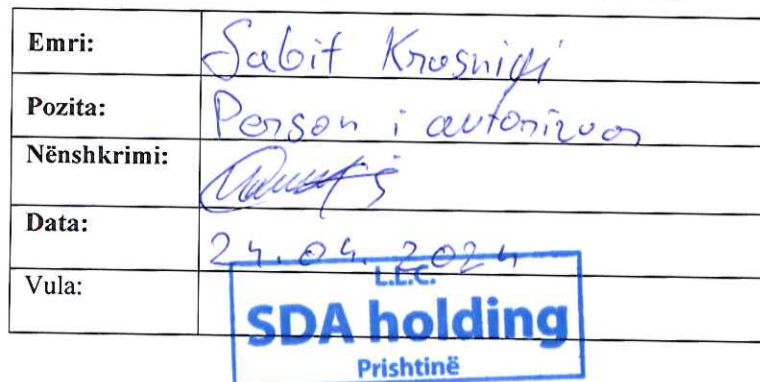 Emri: Sabit Krasniqi
Pozita: Person i autorizuar
Nënshkrimi:
Data: 24.04.2024
Vula:
L.L.C.
SDA holding
Prishtinë